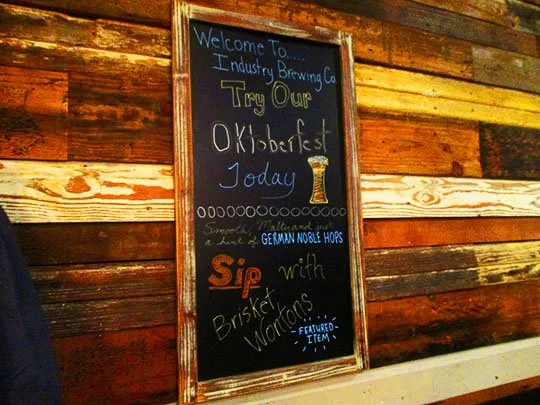 Welcome To.....
Industry Brewing Co
Try Our
Oktoberfest
Today
Smooth, Malty and just
a hint of GERMAN NOBLE HOPS
Sip with
Brisket
Wontons
FEATURED
ITEM